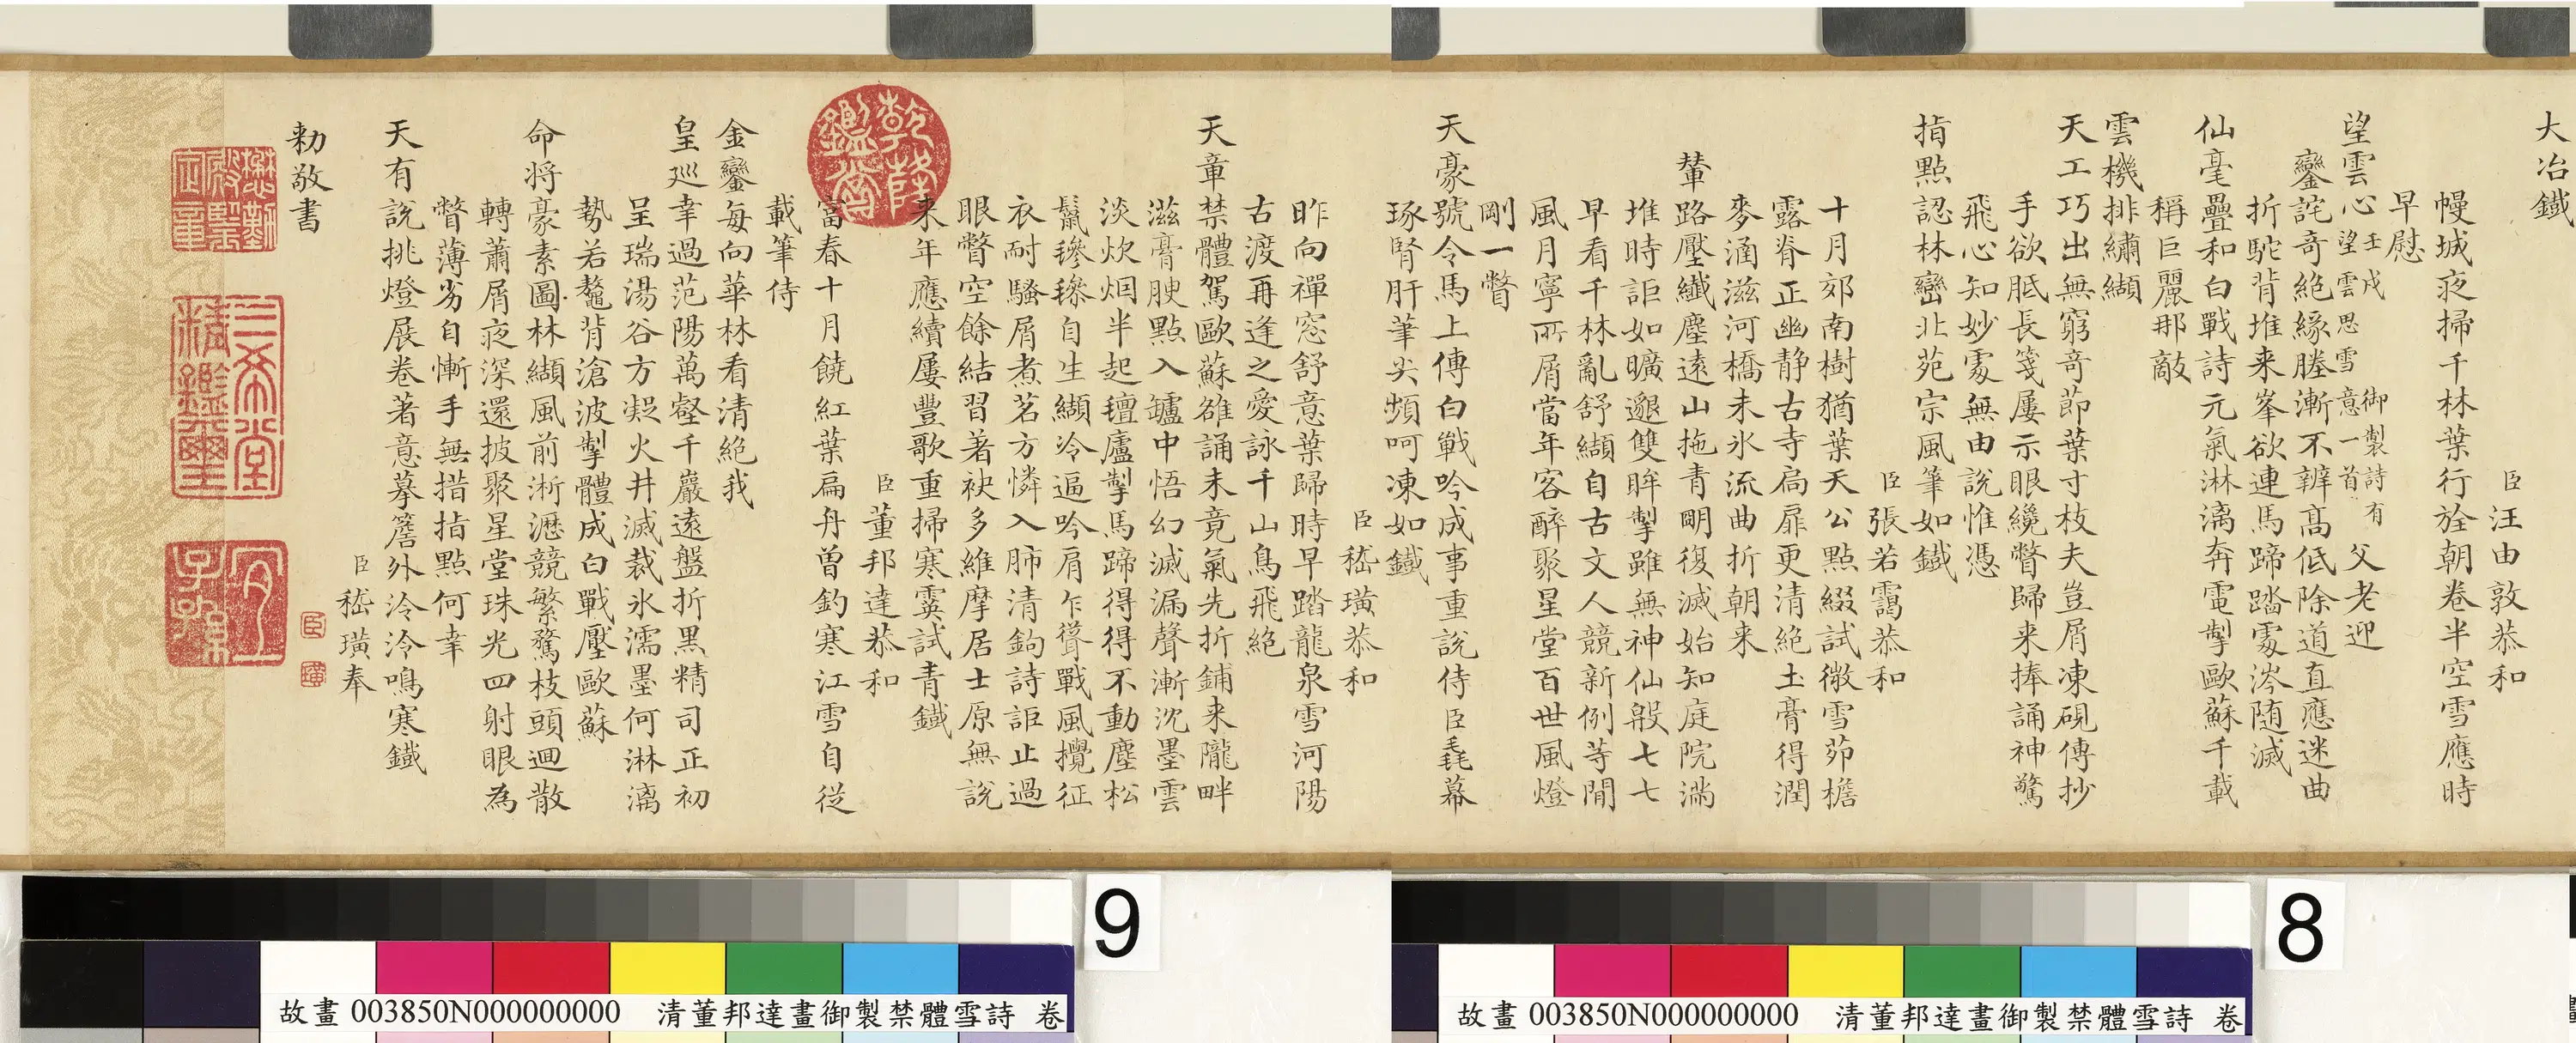 大冶鐵
臣汪由敦恭和
幔城夜掃千林葉行於朝卷半空雪應時
早慰
望雲心壬戌御製詩有望雲思雪意一首父老迎
鑾詫奇絕緣塍漸不辨高低除道直應迷曲
折駝背堆来峯欲連馬蹄踏處涔随滅
仙毫疊和白戰詩元氣淋漓奔電掣歐蘇千載
稱巨麗那敵
雲機排繡纈
天工巧出無窮奇節葉寸枝夫豈屑凍硯傳抄
手欲胝長箋屢示眼纔瞥歸来捧誦神驚
飛心知妙處無由說惟憑
指點認林巒北苑宗風筆如鐵
臣張若靄恭和
十月郊南樹猶葉天公點綴試微雪茆檐
露脊正幽静古寺扃扉更清絕土膏得潤
麥涵滋河橋未氷流曲折朝来
輦路壓纖塵遠山拖青明復滅始知庭院滿
堆時詎如曠邈雙眸掣雖無神仙殷七七
早看千林亂舒纈自古文人競新例等閒
風月寧所屑當年客醉聚星堂百世風燈
剛一瞥
天豪號令馬上傳白戰吟成事重說侍臣毳幕
琢腎肝筆尖頻呵凍如鐵
臣嵇璜恭和
昨向禪窓舒意葉歸時早踏龍泉雪河陽
古渡再逢之愛詠千山鳥飛絕
天章禁體駕歐蘇雒誦未竟氣先折鋪来隴畔
滋膏腴點入罏中悟幻滅漏聲漸沈墨雲
淡炊烟半起氊廬掣馬蹄得得不動塵松
鬣毿毿自生纈冷逼吟肩乍聳戰風攪征
衣耐騷屑煮茗方憐入肺清鉤詩詎止過
眼瞥空餘結習著袂多維摩居士原無說
来年應續屢豐歌重掃寒雲試青鐵
臣董邦達恭和
富春十月饒紅葉扁舟曾釣寒江雪自從
載筆侍
金鑾每向華林看清絕我
皇巡幸過范陽萬壑千巖遠盤折黑精司正初
呈瑞湯谷方凝火井滅裁氷濡墨何淋漓
勢若鼇背滄波掣體成白戰壓歐蘇
命将豪素圖林纈風前淅瀝競繁鶩枝頭迴散
轉蕭屑夜深還披聚星堂珠光四射眼為
瞥薄劣自慚手無措指點何幸
天有說挑燈展卷著意摹簷外泠泠鳴寒鐵
臣嵇璜奉
勑敬書
臣
璜
乾隆鑑賞
懋勤殿鑒定章
三希堂精鑑璽
宜子孫
9
故畫 003850N000000000 清董邦達畫御製禁體雪詩 卷
8
故畫 003850N000000000 清董邦達畫御製禁體雪詩 卷